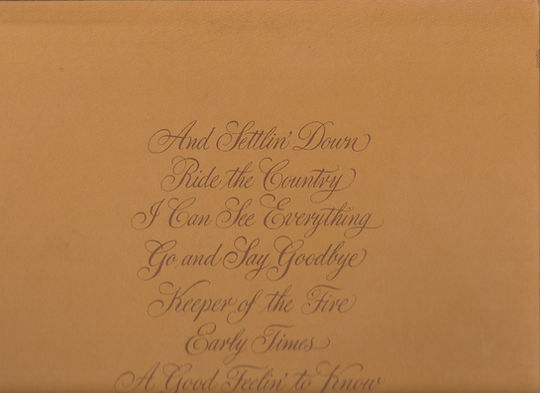 And Settlin' Down
Ride the Country
I Can See Everything
Go and Say Goodbye
Keeper of the Fire
Early Times
A Good Feelin' to Know